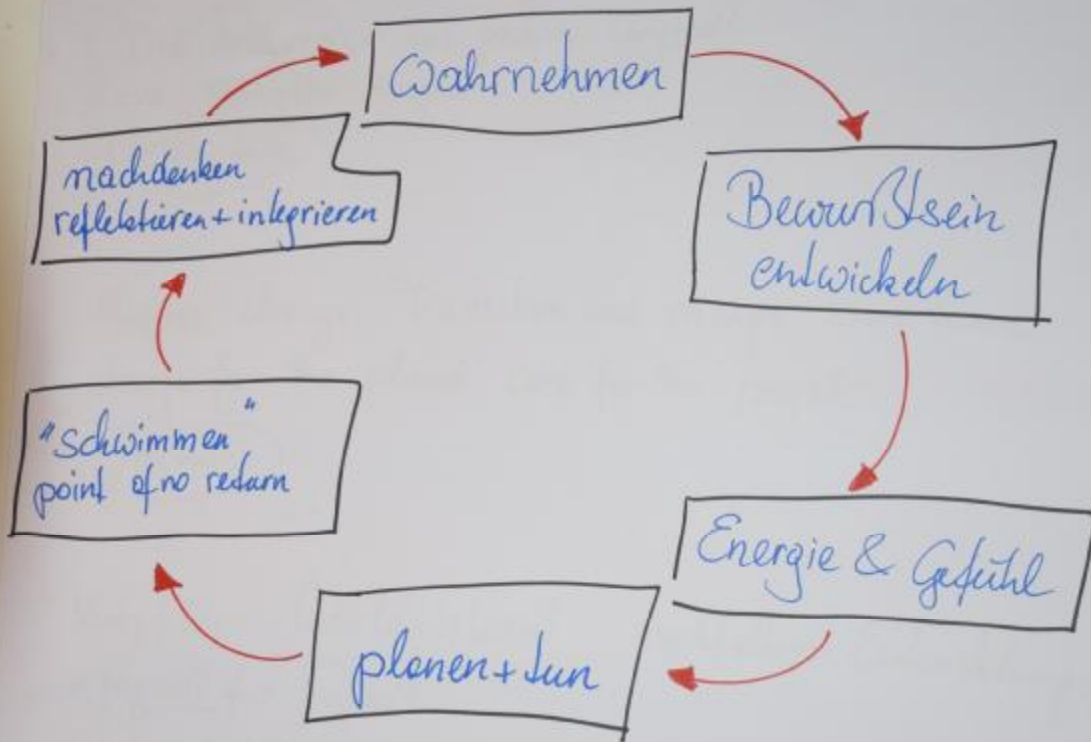 Wahrnehmen
Bewußtsein
entwickeln
Energie & Gefühl
planen + tun
"Schwimmen"
point of no return
nachdenken
reflektieren + integrieren